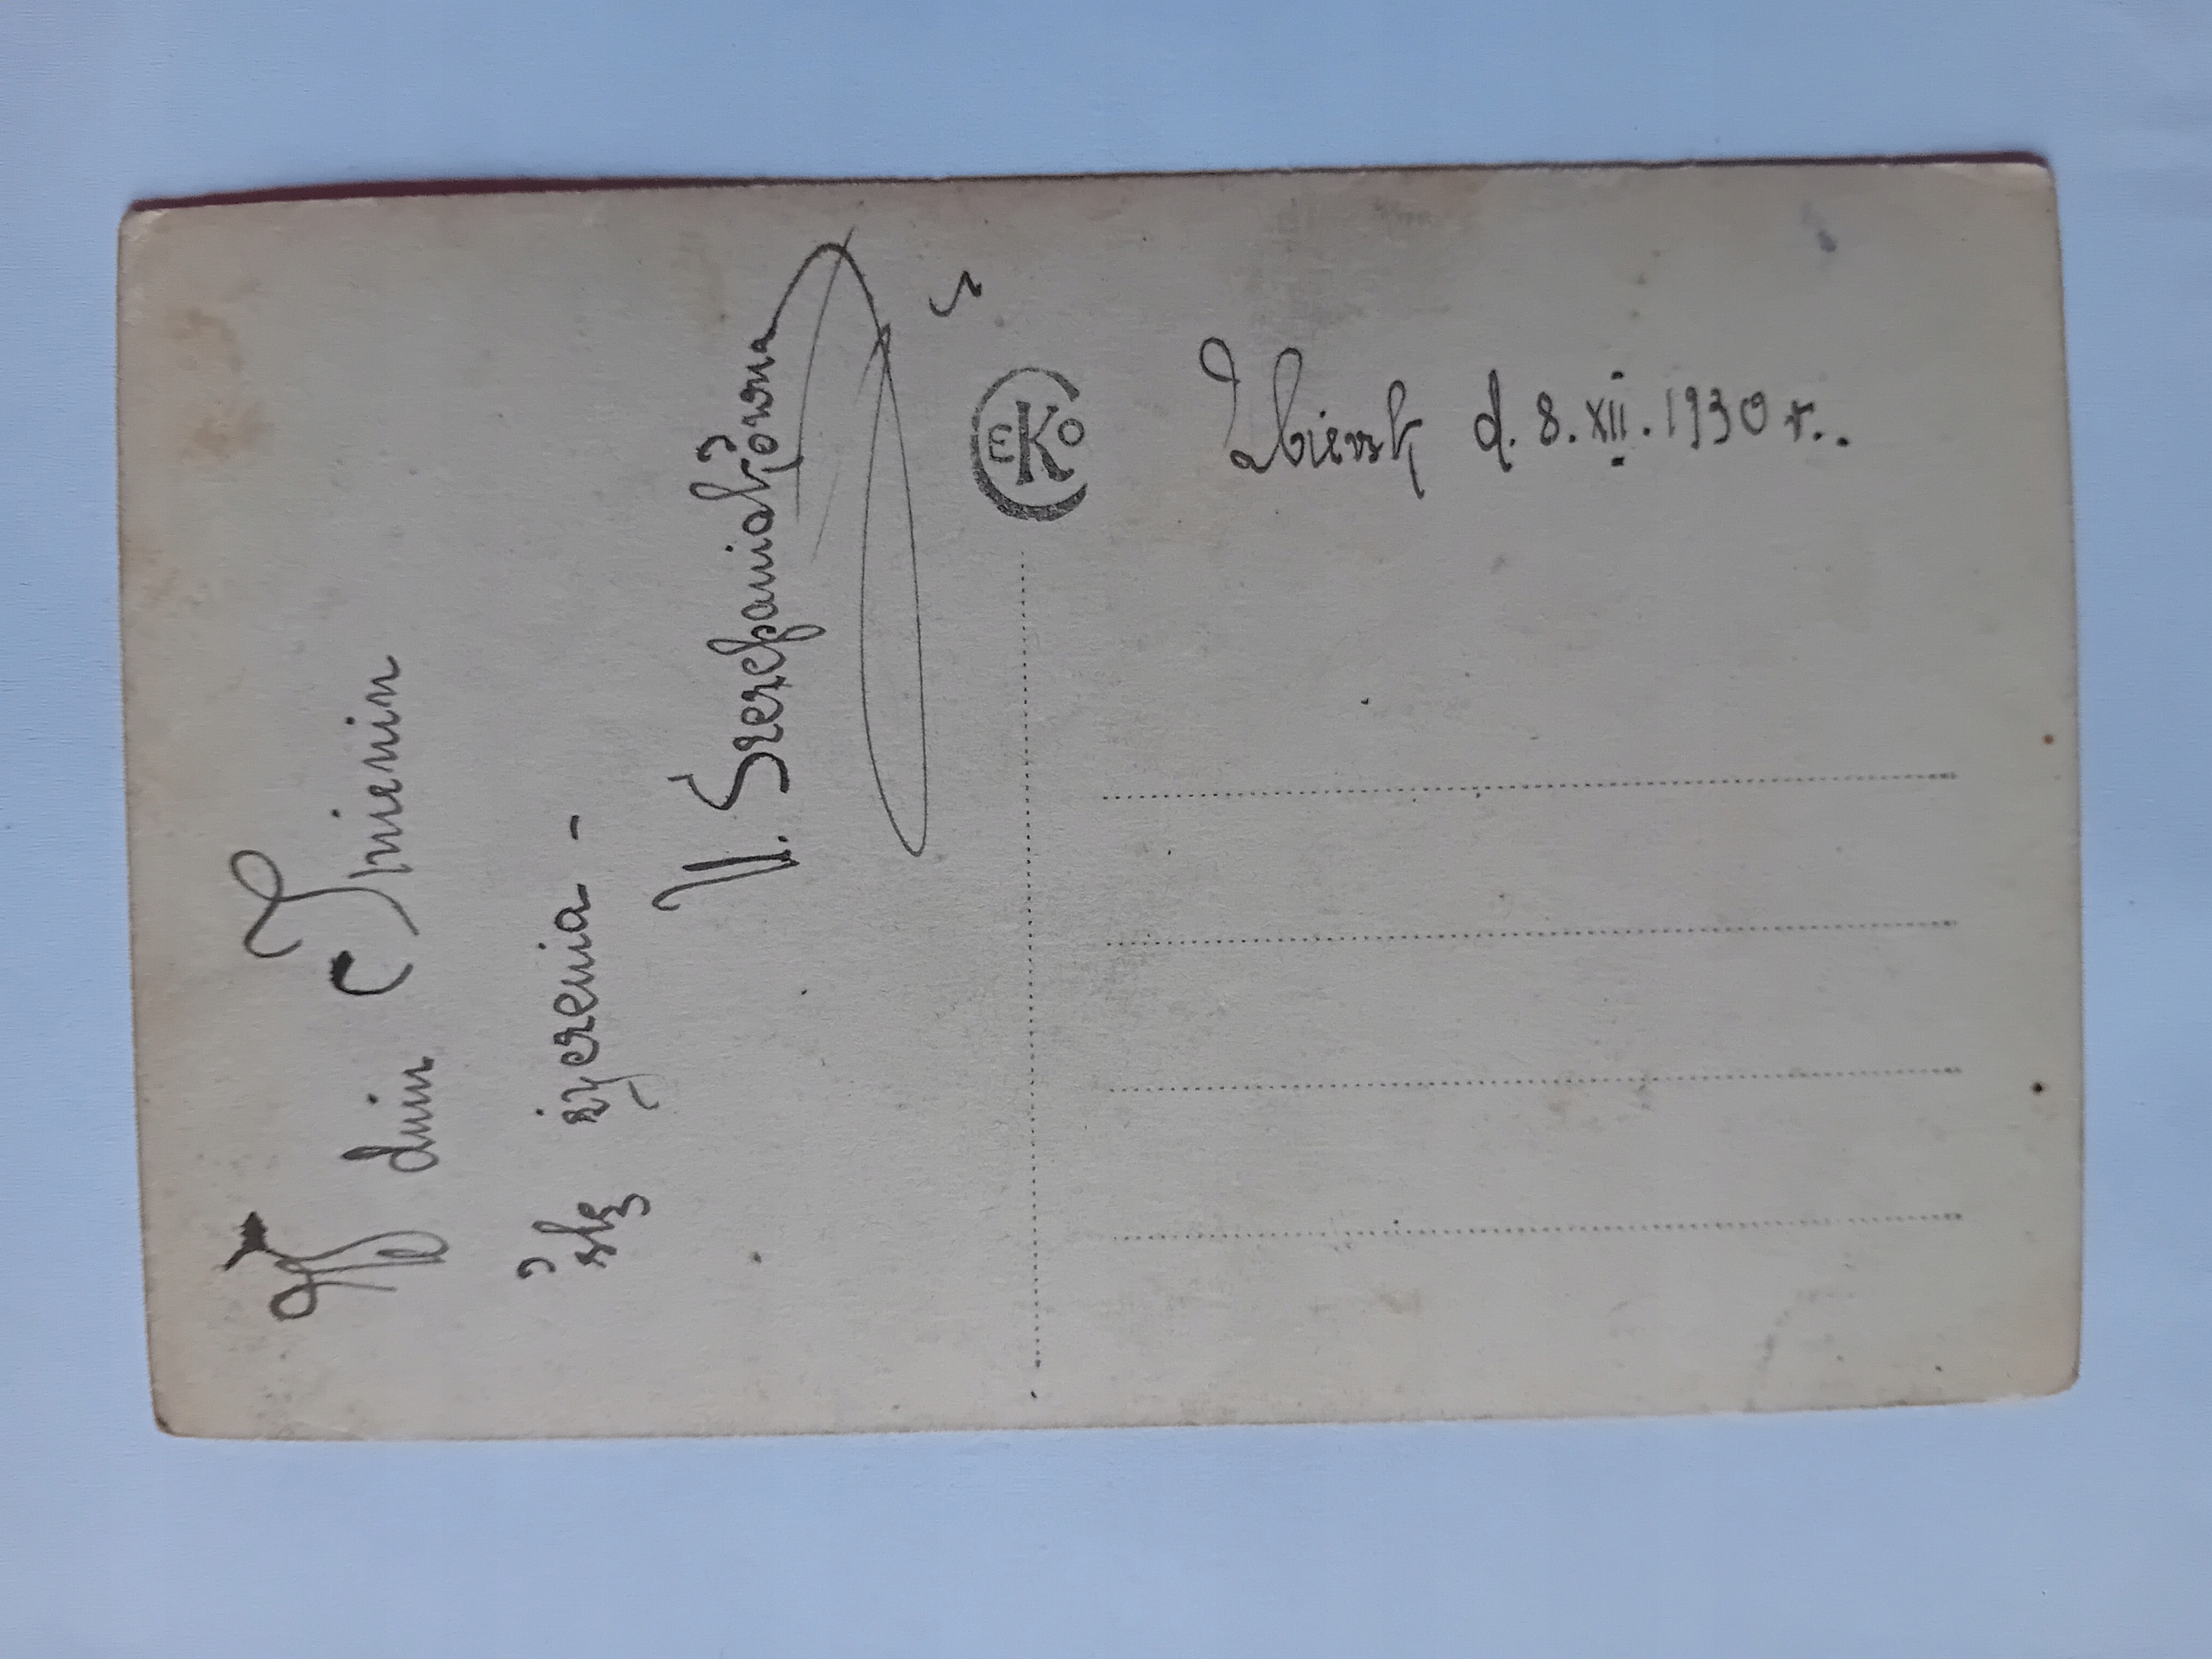 W dniu Imienin
śle życzenia -
N. Szczepaniakówna
EKO
Zbiersk d. 8. XII. 1930 r..